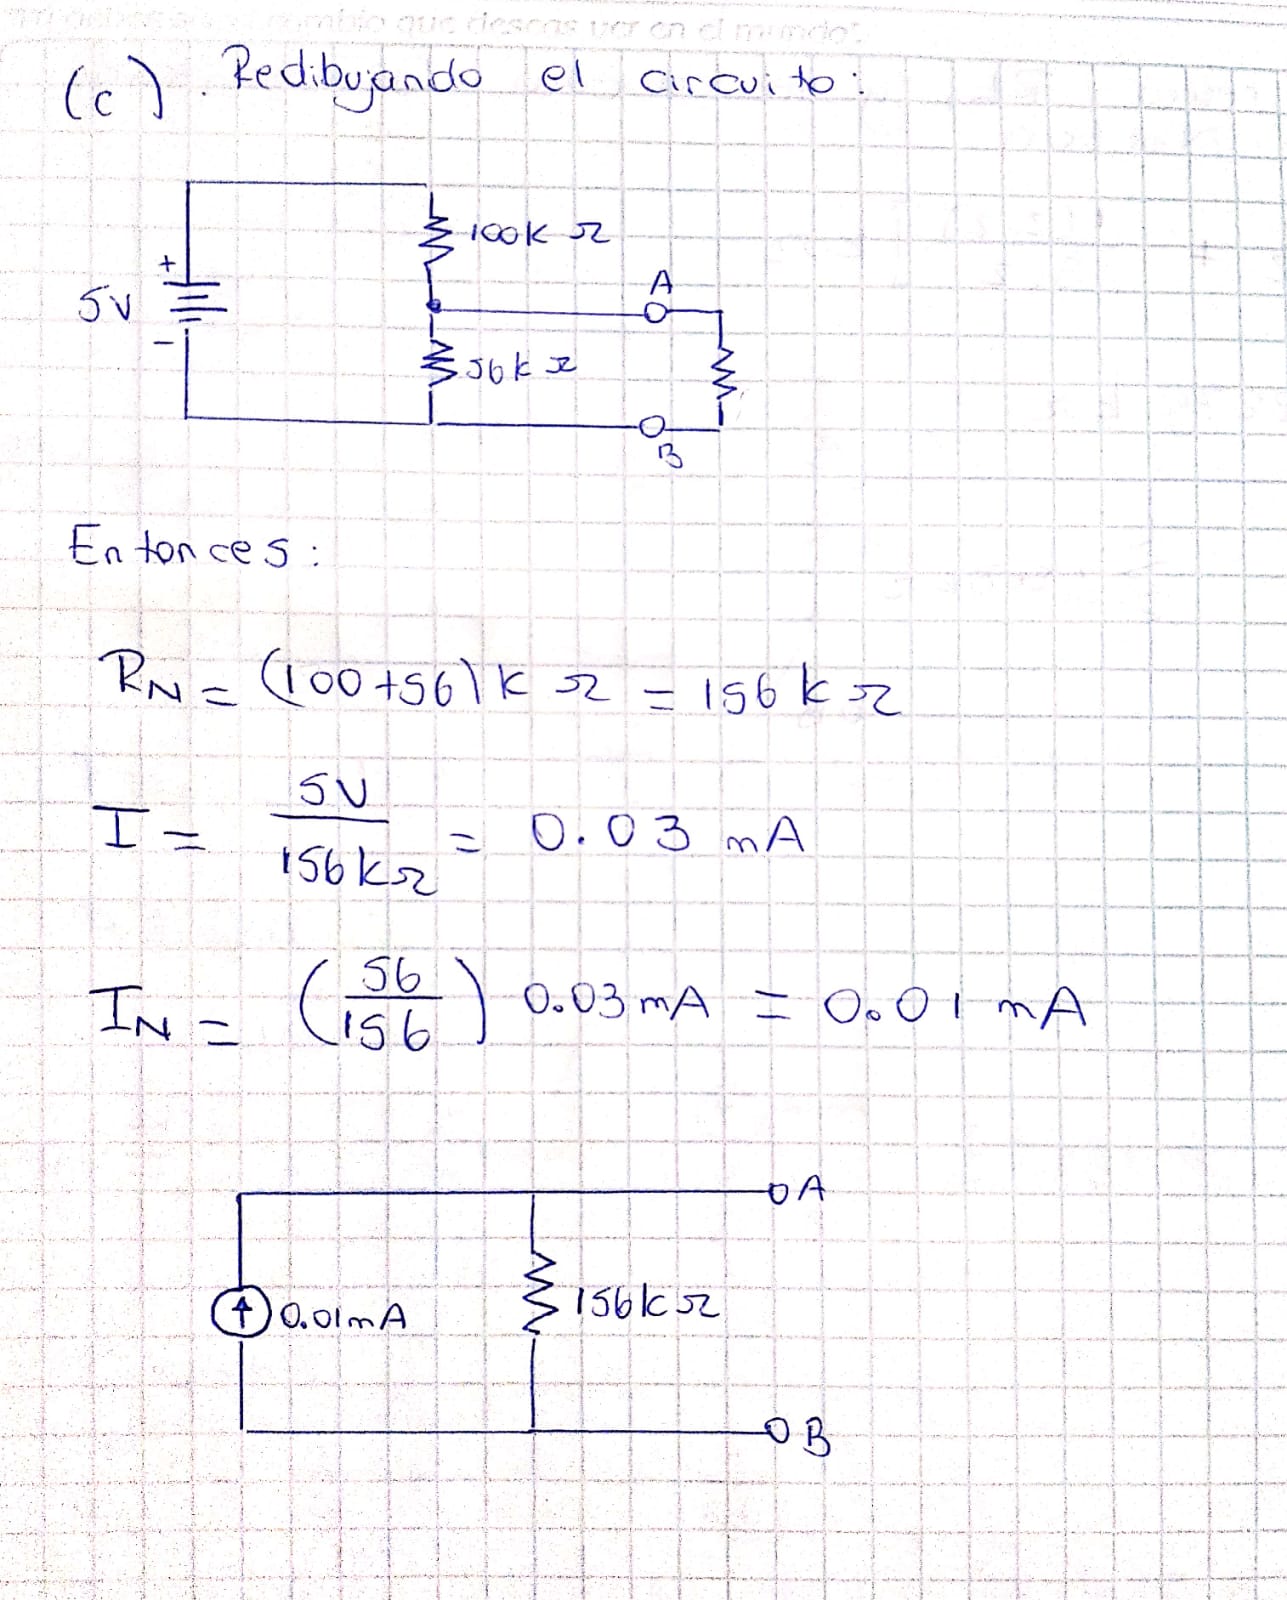 cambio que deseas ver en el mundo".
(c). Redibujando el circuito:
100K Ω
+
5V
-
A
56K Ω
B
Entonces:
RN = (100+56)K Ω = 156 K Ω
I = 5V / 156KΩ = 0.03 mA
IN = (56/156) 0.03 mA = 0.01 mA
A
0.01mA
156KΩ
B